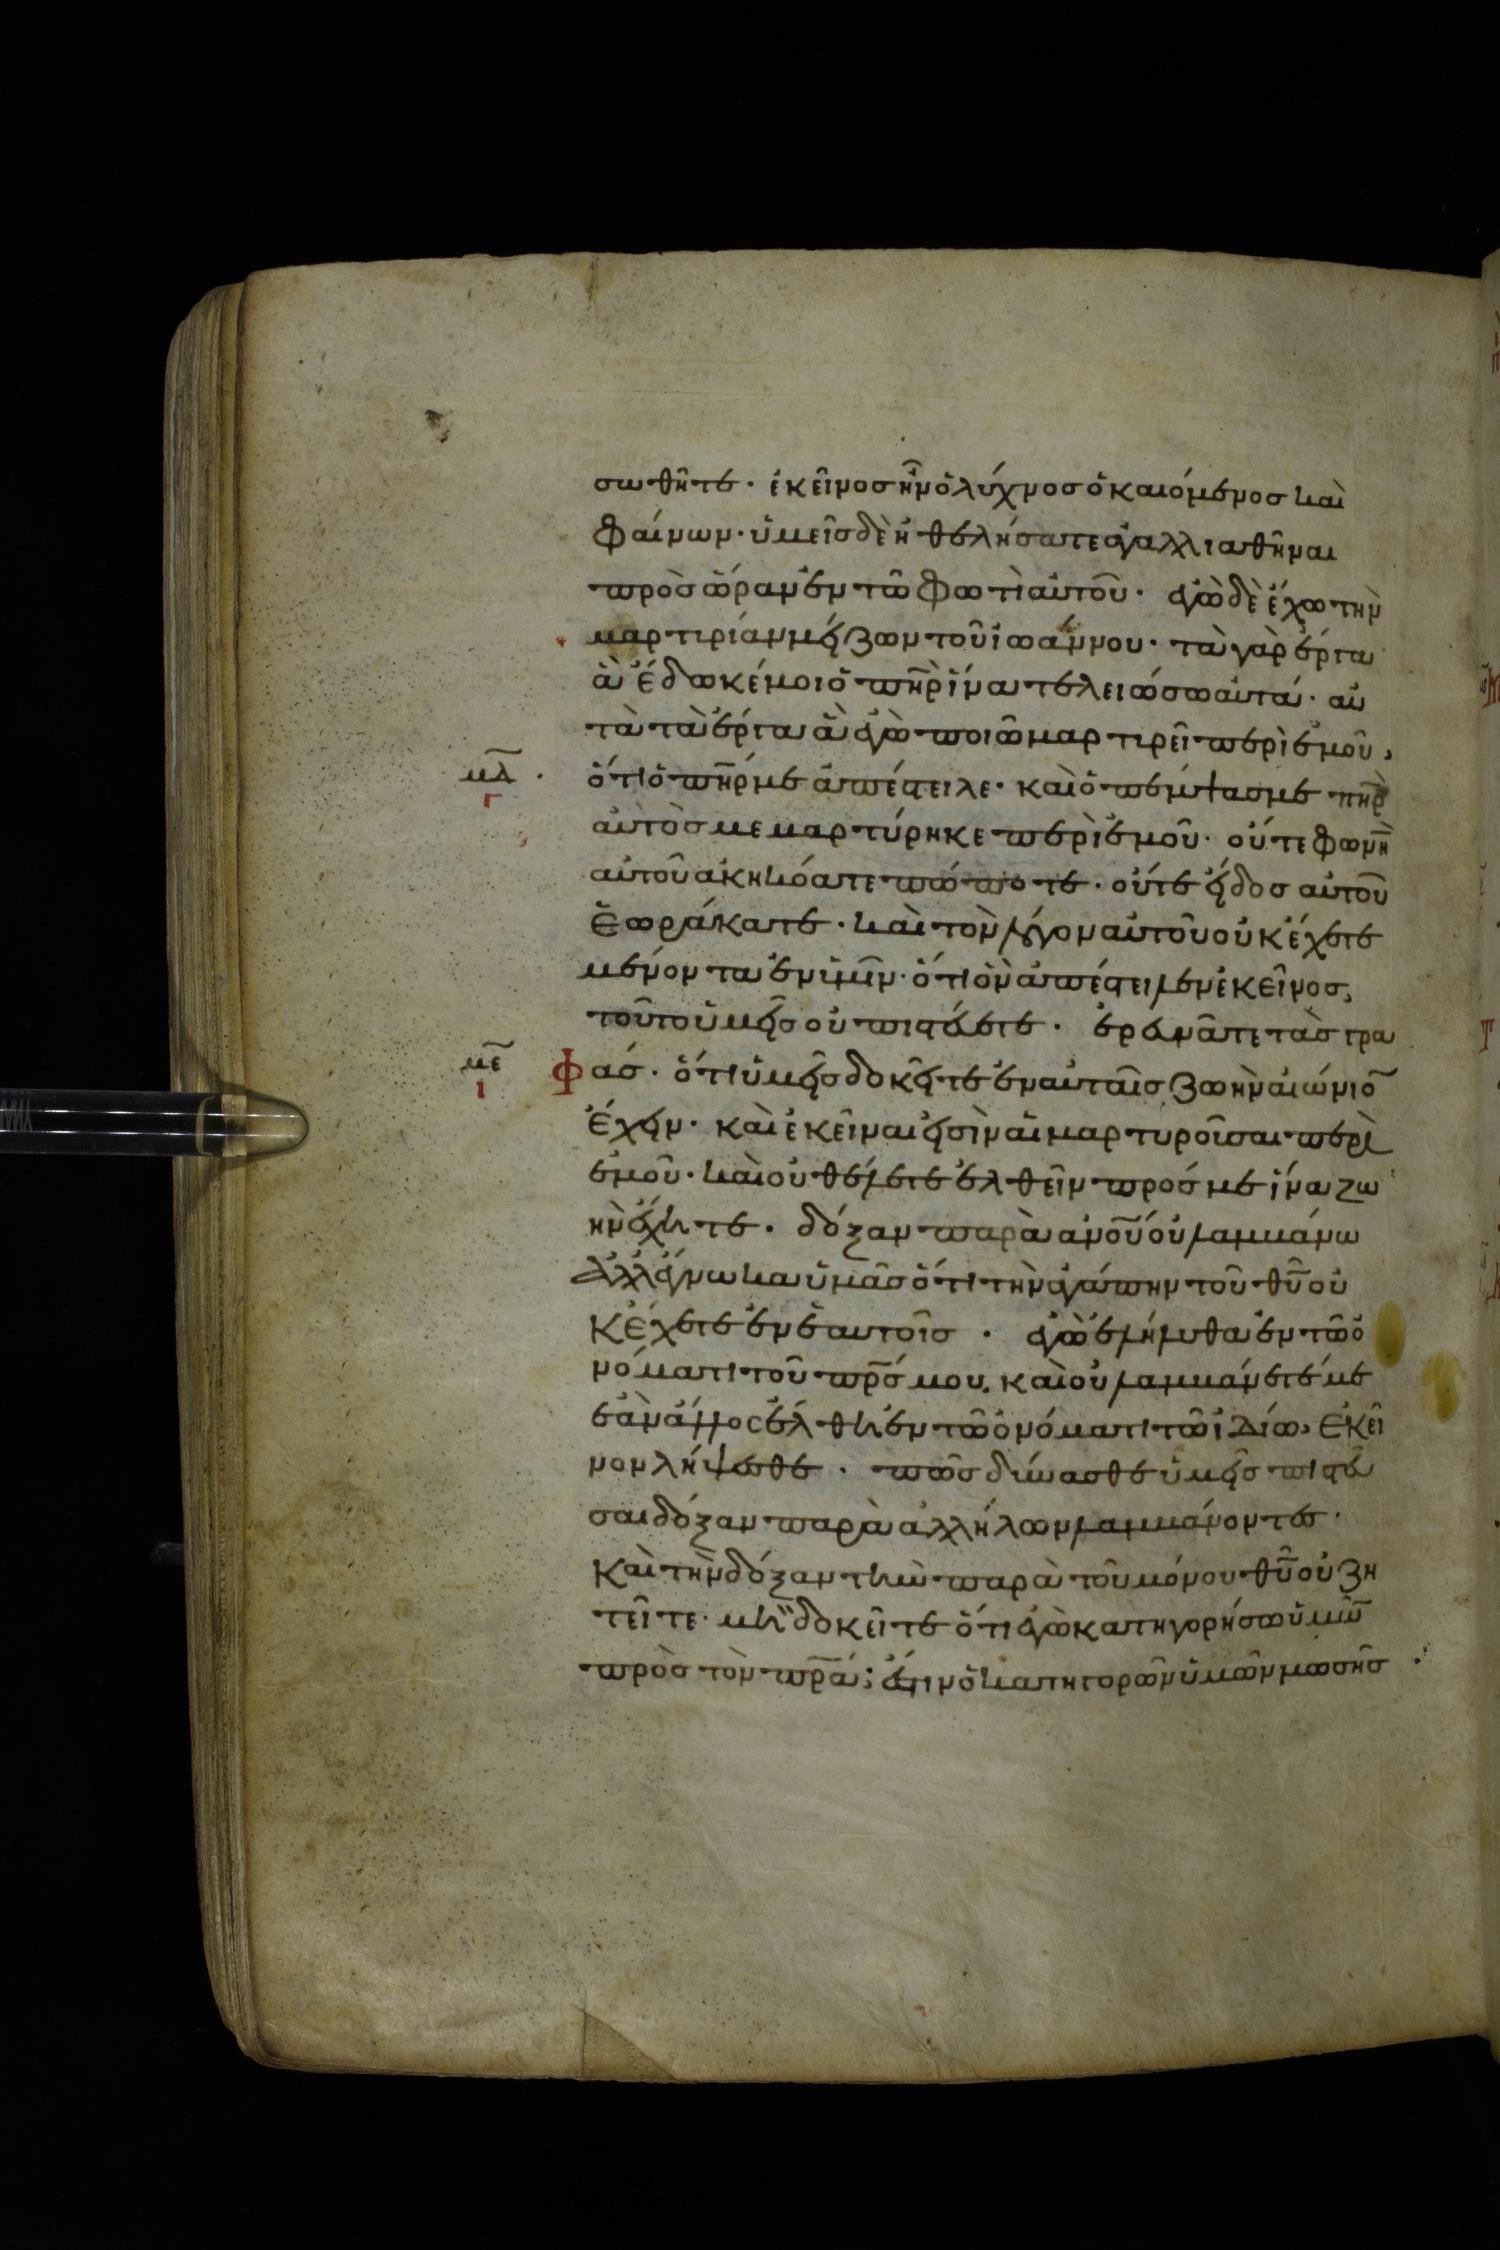 σωθῆτε· ἐκεῖνοσ ἦν ὁ λύχνοσ ὁ καιόμενοσ καὶ
φαίνων· ὑμεῖσ δὲ ἠθελήσατε ἀγαλλιαθῆναι
πρὸσ ὥραν ἐν τῶ φωτὶ αὐτοῦ· ἐγὼ δὲ ἔχω τὴν
μαρτιρίαν μείζων τοῦ ἰωάννου· τὰ γὰρ ἔργα
ἃ ἔδωκέ μοι ὁ πη̅ρ ἵνα τελειώσω αὐτά· αὐ
τὰ τὰ ἔργα ἃ ἐγὼ ποιῶ μαρτιρεῖ περὶ ἐμοῦ,
μδ̅ ὅτι ὁ πη̅ρ με ἀπέστειλε· καὶ ὁ πέμψασ με πη̅ρ
γ
αὐτὸσ μεμαρτύρηκε περὶ ἐμοῦ· οὔτε φωνὴ
αὐτοῦ ἀκηκόατε πώποτε· οὔτε εἶδοσ αὐτοῦ
ἑωράκατε· καὶ τὸν λόγον αὐτοῦ οὐκ ἔχετε
μένοντα ἐν ὑμῖν· ὅτι ὃν ἀπέστειλεν ἐκεῖνοσ,
τοῦτο ὑμεῖσ οὐ πιστεύετε· ἐρευνᾶτε τὰσ γρα
με̅ φάσ· ὅτι ὑμεῖσ δοκεῖτε ἐν αὐταῖσ ζωὴν αἰώνιο̅
ι
ἔχειν· καὶ ἐκεῖναι εἰσὶν αἱ μαρτυροῖσαι περὶ
ἐμοῦ· καὶ οὐ θέλετε ἐλθεῖν πρόσ με ἵνα ζω
ὴν ἔχητε· δόξαν παρὰ ανο̅υ οὐ λαμβάνω
ἀλλ' ἔγνωκα ὑμᾶσ ὅτι τὴν ἀγάπην τοῦ θυ̅ οὐ
κ ἔχετε ἐν ἑαυτοῖσ· ἐγὼ ἐλήλυθα ἐν τῶ ὀ
νόματι τοῦ πρ̅σ μου, καὶ οὐ λαμβάνετέ με
ἐὰν ἄλλοσ ἔλθη ἐν τῶ ὀνόματι τῶ ἰδίω, ἐκεῖ
νον λήψεσθε· πῶσ δύνασθε ὑμεῖσ πιστεῦ
σαι δόξαν παρὰ ἀλλήλων λαμβάνοντεσ·
καὶ τὴν δόξαν τὴν παρὰ τοῦ μόνου θυ̅ οὐ ζη
τεῖτε· μὴ δοκεῖτε ὅτι ἐγὼ κατηγορήσω ὑμῶ̅
πρὸσ τὸν πρ̅α; ἔστιν ὁ κατηγορῶν ὑμῶν μωσῆσ·